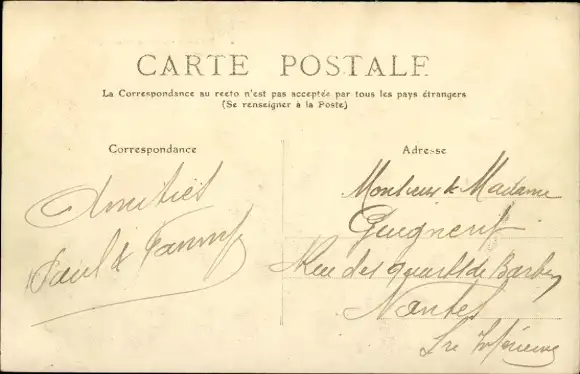 CARTE POSTALE
La Correspondance au recto n'est pas acceptée par tous les pays étrangers
(Se renseigner à la Poste)
Correspondance
Adresse
Amitiés
Paul & Fanny
Monsieur & Madame
Rue des quarts de Barbin
Nantes
Lre Inférieure